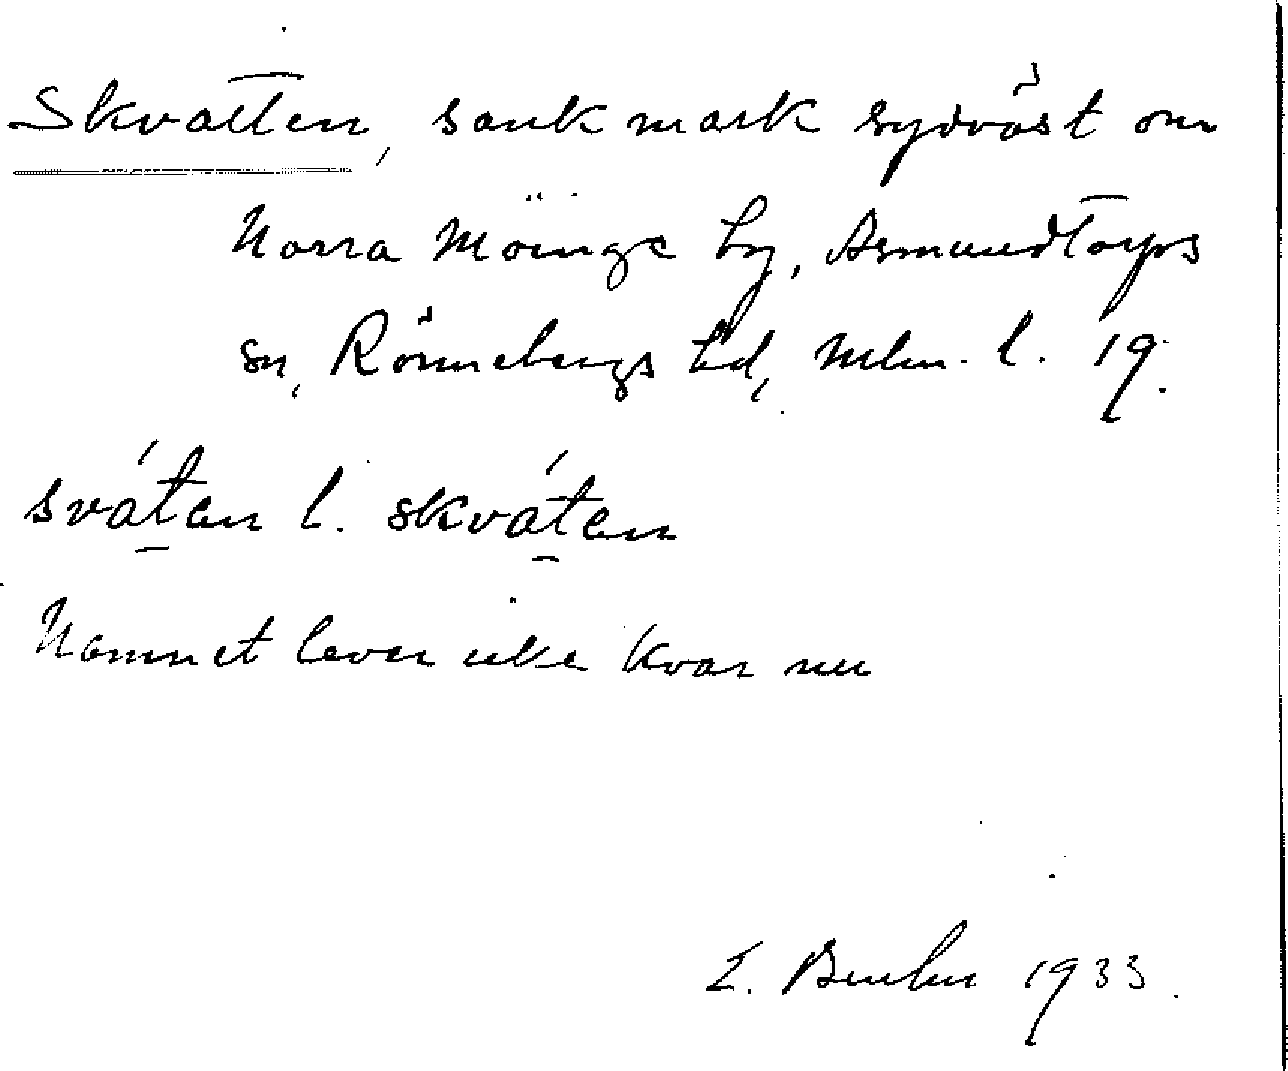 Skvatten, sank mark sydväst om
Norra Möinge by, Asmundtorps
sn, Rönnebergs hd, Mlm. l. 19.
sváten l. skváten
Namnet lever icke kvar nu
1933.